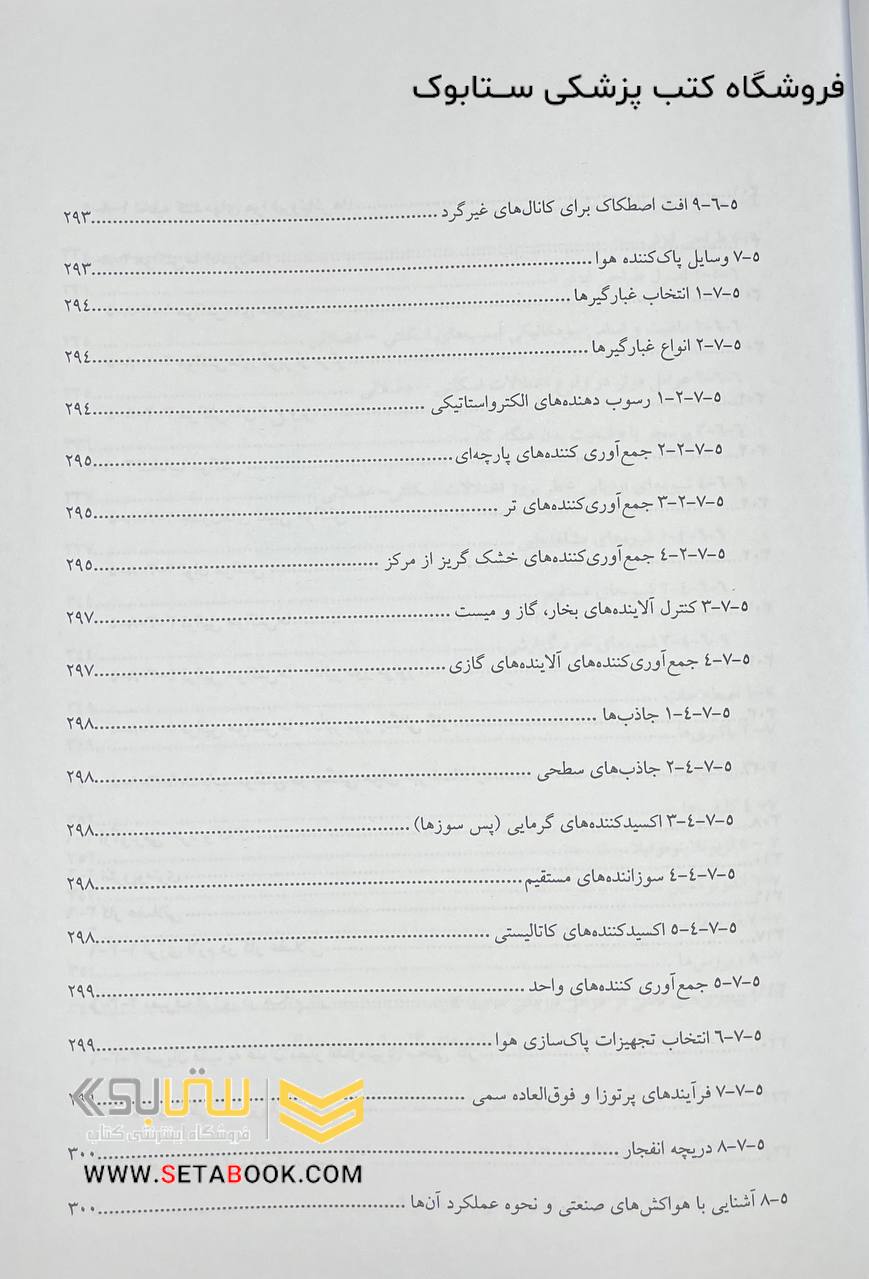 فروشگاه کتب پزشکی ستابوک
۵-۶-۹ افت اصطکاک برای کانال‌های غیرگرد ........ ۲۹۳
۵-۷ وسایل پاک‌کننده هوا ........ ۲۹۳
۵-۷-۱ انتخاب غبارگیرها ........ ۲۹٤
۵-۷-۲ انواع غبارگیرها ........ ۲۹٤
۵-۷-۲-۱ رسوب دهنده‌های الکترواستاتیکی ........ ۲۹٤
۵-۷-۲-۲ جمع‌آوری کننده‌های پارچه‌ای ........ ۲۹۵
۵-۷-۲-۳ جمع‌آوری‌کننده‌های تر ........ ۲۹۵
۵-۷-۲-٤ جمع‌آوری‌کننده‌های خشک گریز از مرکز ........ ۲۹۵
۵-۷-۳ کنترل آلاینده‌های بخار، گاز و میست ........ ۲۹۷
۵-۷-٤ جمع‌آوری‌کننده‌های آلاینده‌های گازی ........ ۲۹۷
۵-۷-٤-۱ جاذب‌ها ........ ۲۹۸
۵-۷-٤-۲ جاذب‌های سطحی ........ ۲۹۸
۵-۷-٤-۳ اکسیدکننده‌های گرمایی (پس سوزها) ........ ۲۹۸
۵-۷-٤-٤ سوزاننده‌های مستقیم ........ ۲۹۸
۵-۷-٤-۵ اکسیدکننده‌های کاتالیستی ........ ۲۹۸
۵-۷-۵ جمع‌آوری کننده‌های واحد ........ ۲۹۹
۵-۷-۶ انتخاب تجهیزات پاک‌سازی هوا ........ ۲۹۹
۵-۷-۷ فرآیندهای پرتوزا و فوق‌العاده سمی ........
ستابوک
فروشگاه اینترنتی کتاب
۵-۷-۸ دریچه انفجار ........ ۳۰۰
WWW.SETABOOK.COM
۵-۸ آشنایی با هواکش‌های صنعتی و نحوه عملکرد آن‌ها ........ ۳۰۰